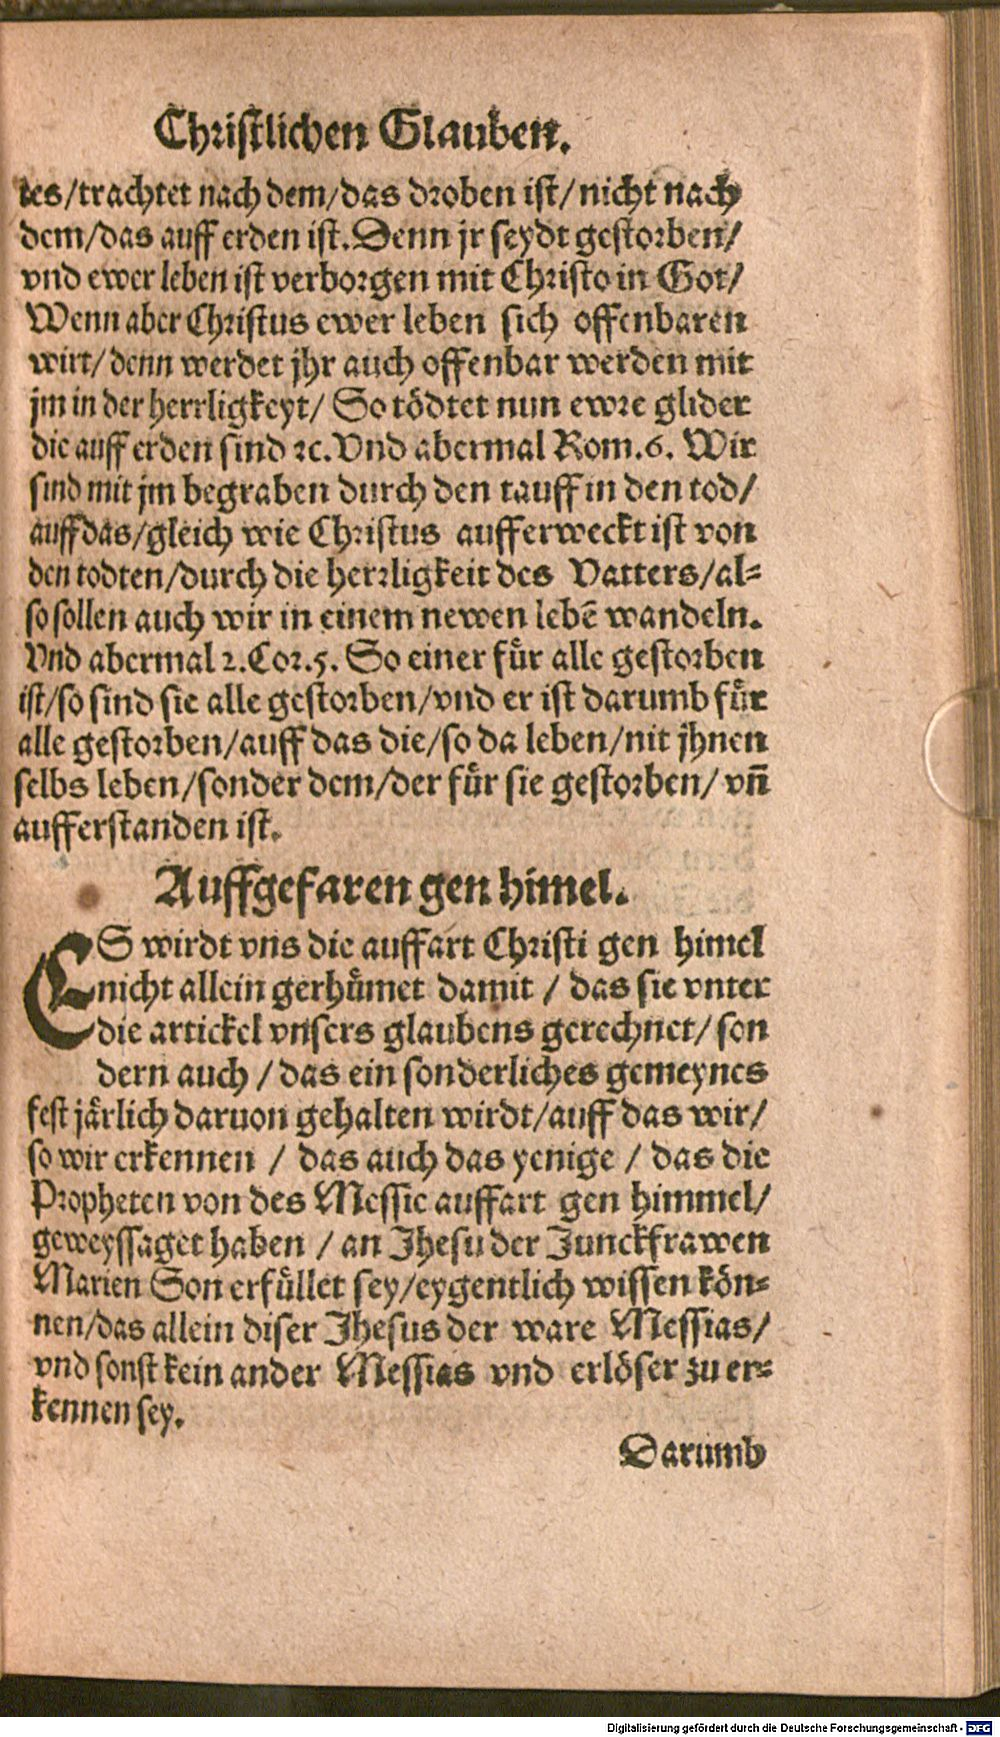 Christlichen Glauben.
tes/trachtet nach dem/das droben ist/nicht nach
dem/das auff erden ist. Denn jr seydt gestorben/
vnd ewer leben ist verborgen mit Christo in Got/
Wenn aber Christus ewer leben sich offenbaren
wirt/denn werdet jhr auch offenbar werden mit
jm in der herrligkeyt/ So tödtet nun ewre glider
die auff erden sind ꝛc. Vnd abermal Rom.6. Wir
sind mit jm begraben durch den tauff in den tod/
auff das/gleich wie Christus aufferweckt ist von
den todten/durch die herrligkeit des Vatters/al-
so sollen auch wir in einem newen lebē wandeln.
Vnd abermal 2.Cor.5. So einer fuͤr alle gestorben
ist/so sind sie alle gestorben/vnd er ist darumb fuͤr
alle gestorben/auff das die/so da leben/nit jhnen
selbs leben/sonder dem/der fuͤr sie gestorben/ vn̄
aufferstanden ist.
Auffgefaren gen himel.
ES wirdt vns die auffart Christi gen himel
nicht allein gerhuͤmet damit / das sie vnter
die artickel vnsers glaubens gerechnet/ son
dern auch / das ein sonderliches gemeynes
fest jaͤrlich daruon gehalten wirdt/auff das wir/
so wir erkennen / das auch das yenige / das die
Propheten von des Messie auffart gen himmel/
geweyssaget haben / an Jhesu der Junckfrawen
Marien Son erfuͤllet sey/eygentlich wissen koͤn-
nen/das allein diser Jhesus der ware Messias/
vnd sonst kein ander Messias vnd erloͤser zu er-
kennen sey.
Darumb
Digitalisierung gefördert durch die Deutsche Forschungsgemeinschaft - DFG